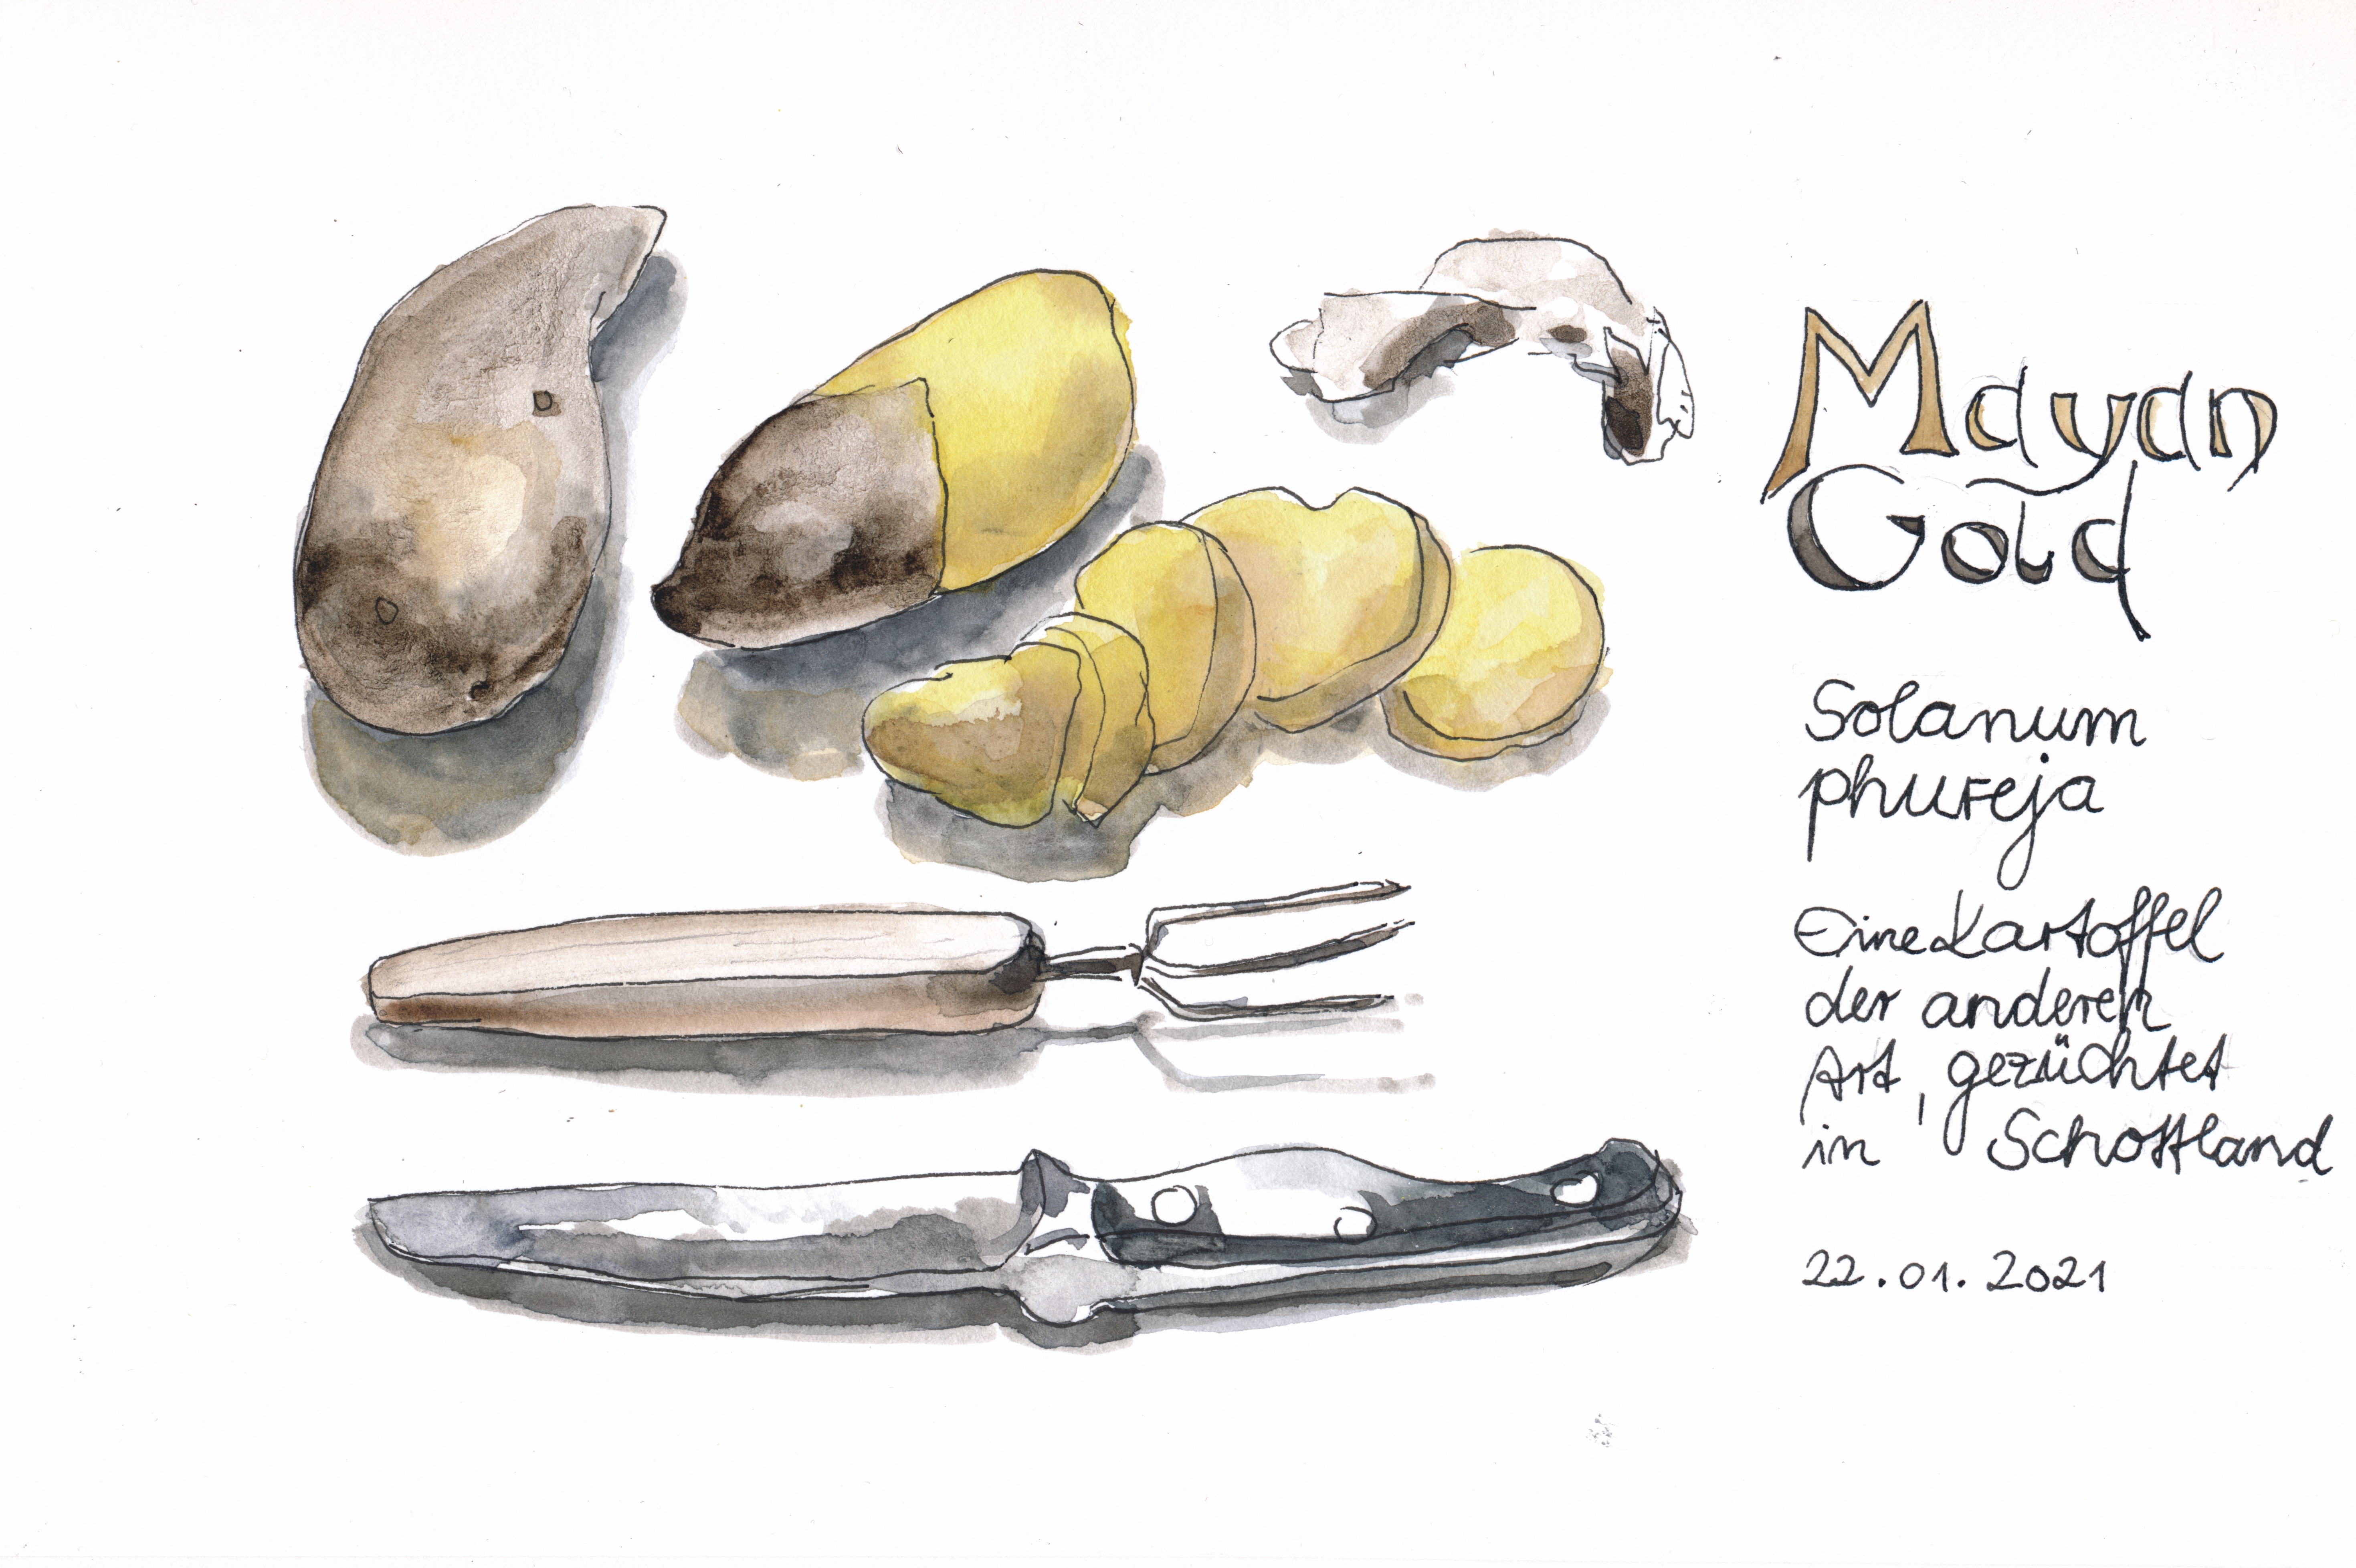 Mayan
Gold
Solanum
phureja
Eine Kartoffel
der anderen
Art, gezüchtet
in Schottland
22.01.2021